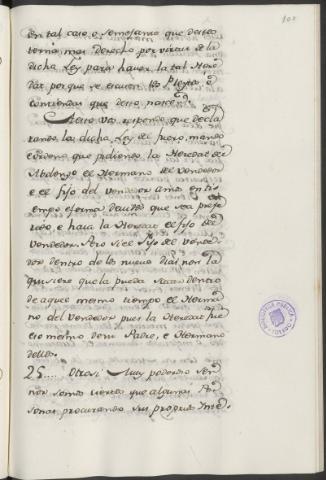 102
en tal caso o semejante que desta
terna mas derecho por virtud de la
dicha Ley para haver la tal Here
dad porque se escusen los Pleytos e
contiendas que dello nascen.
A esto vos respondo que decla
rando la dicha Ley del fuero, mando
e ordeno que pidiendo la Heredad del
Abolengo el Hermano del Vendedor
e el fijo del vendedor ambos en ti
empo e forma devida que sea prefe
rido, e haia la Heredad el fijo del
vendedor. Pero si el fijo del vende
dor dentro de los nueve dias non la
quisiere que la pueda sacar dentro
de aquel mesmo tiempo el Herma
no del Vendedor pues la Heredad fue
eso mesmo de su Padre, e Hermano
dellos.
25.... Otrosi: Muy poderoso Señ
nor somos ciertos que algunas Per
sonas procurando sus propios Inte.